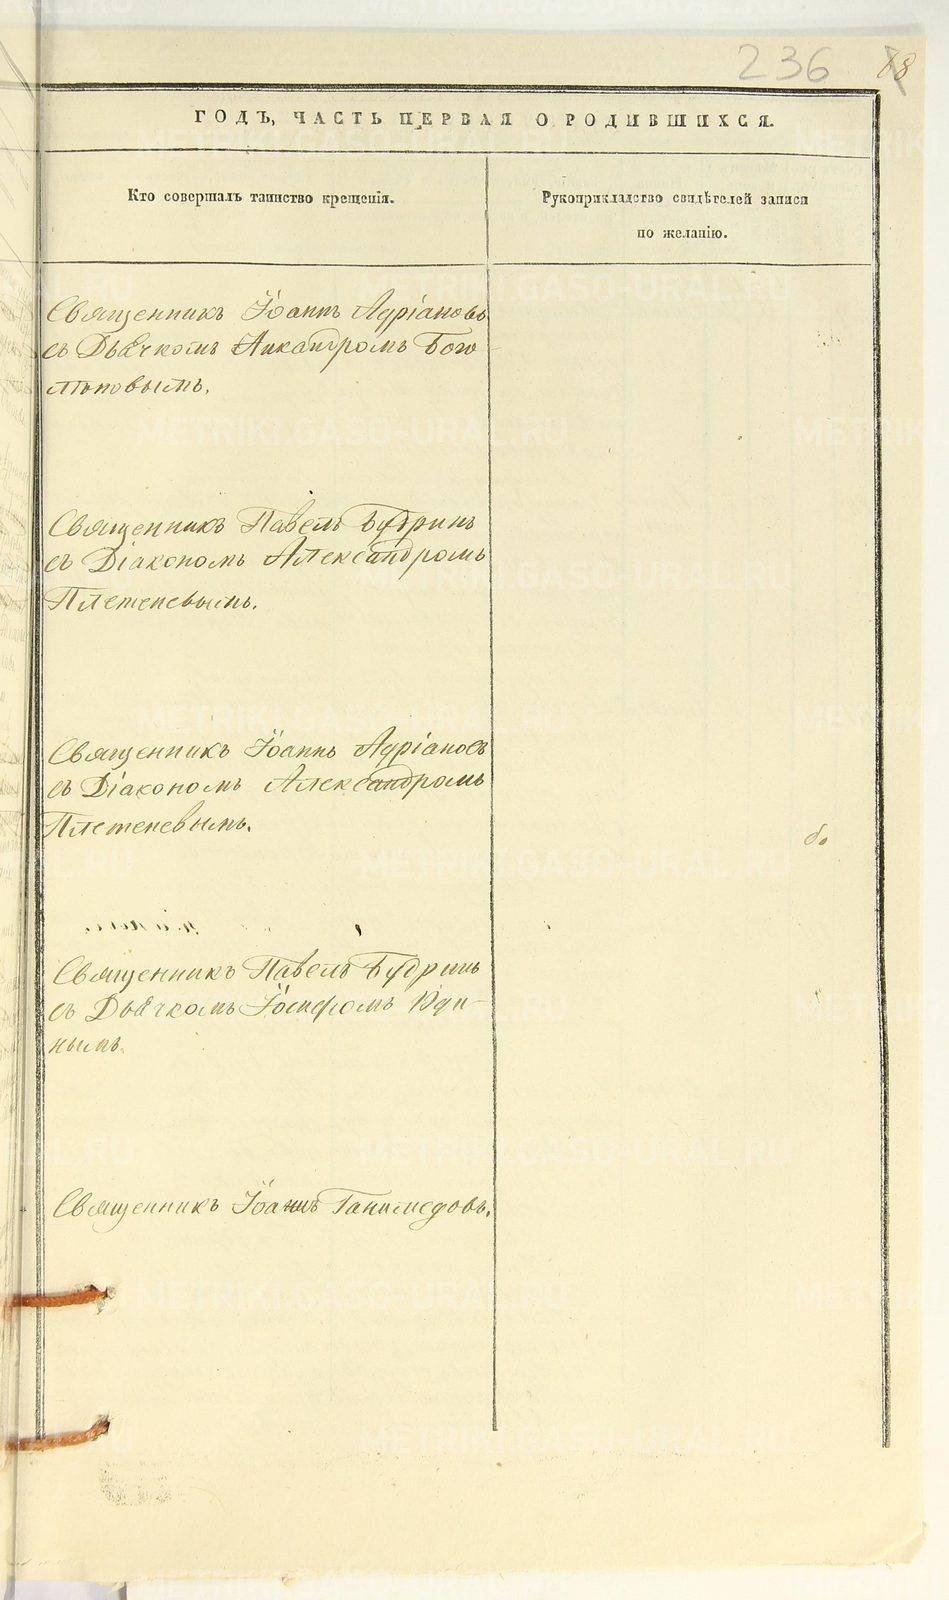 236
88
ГОДЪ, ЧАСТЬ ПЕРВАЯ О РОДИВШИХСЯ.
Кто совершалъ таинство крещенія.
Рукоприкладство свидѣтелей записи
по желанію.
Священникъ Іоаннъ Адріановъ
съ Дьячкомъ Никандромъ Бого-
люповымъ.
Священникъ Павелъ Будринъ
съ Діакономъ Александромъ
Плетеневымъ.
Священникъ Іоаннъ Адріановъ
съ Діакономъ Александромъ
Плетеневымъ.
Священникъ Павелъ Будринъ
съ Дьячкомъ Іосифомъ Юди-
нымъ.
Священникъ Іоаннъ Ганимедовъ.
METRIKI.GASO-URAL.RU